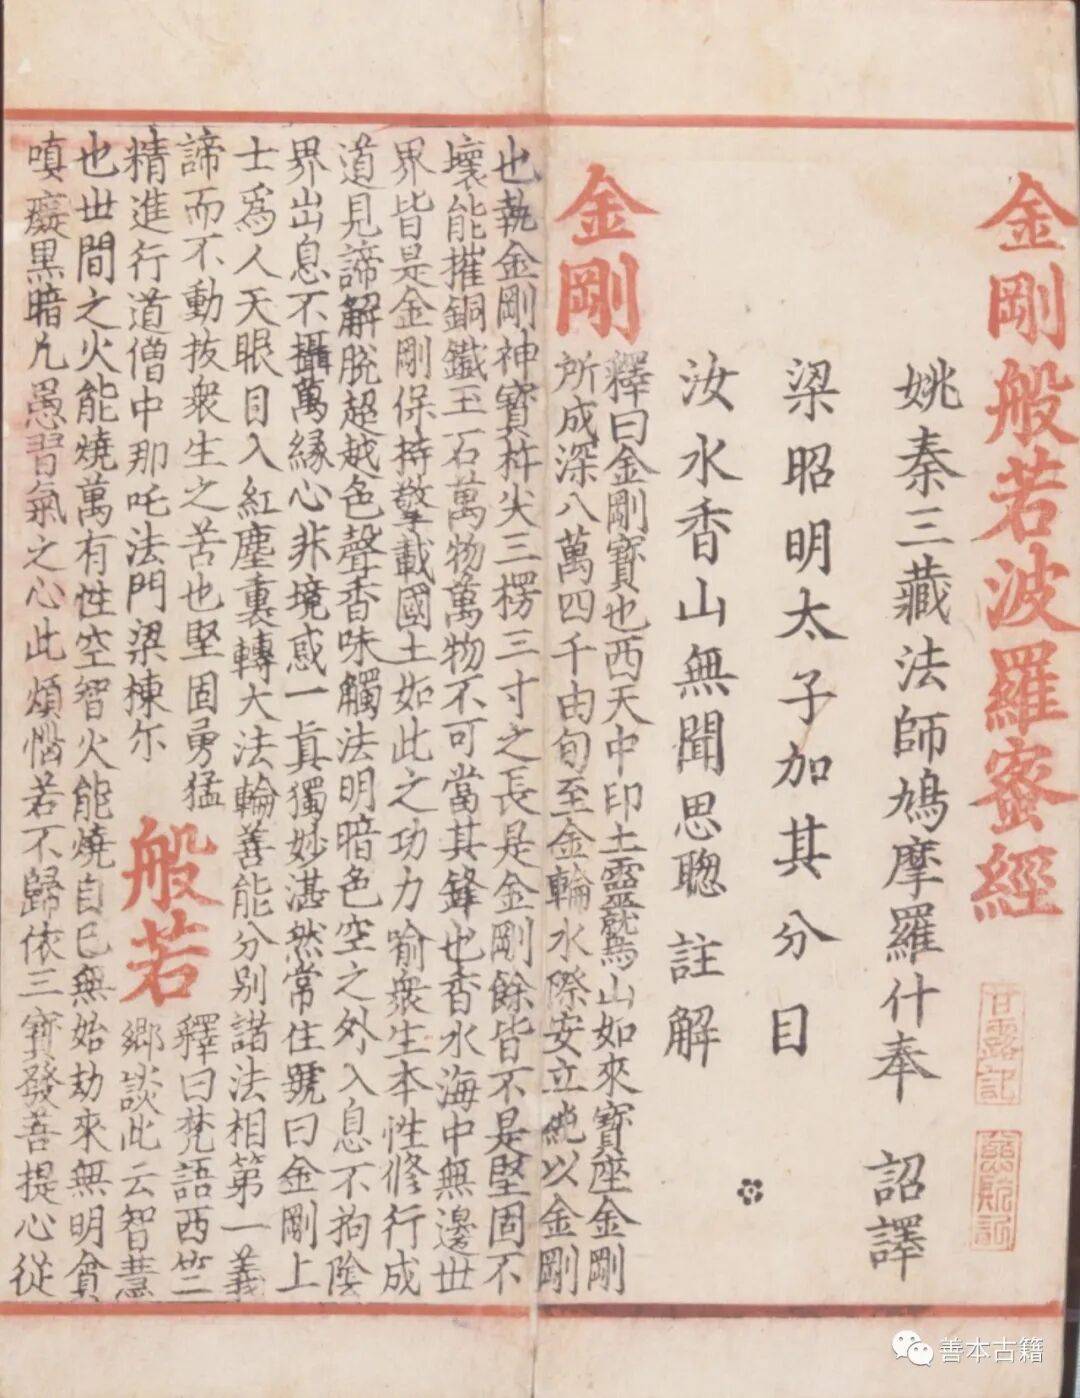 金剛般若波羅蜜經
姚秦三藏法師鳩摩羅什奉 詔譯
梁昭明太子加其分目
汝水香山無聞思聰 註解
金剛
釋曰金剛寶也西天中印土靈鷲山如來寶座金剛
所成深八萬四千由旬至金輪水際安立繞以金剛
也執金剛神寶杵尖三楞三寸之長是金剛餘皆不是堅固不
壞能摧銅鐵玉石萬物萬物不可當其鋒也香水海中無邊世
界皆是金剛保持擎載國土如此之功力喻衆生本性修行成
道見諦解脫超越色聲香味觸法明暗色空之外入息不拘陰
界出息不攝萬緣心非境惑一真獨妙湛然常住號曰金剛上
士爲人天眼目入紅塵裏轉大法輪善能分别諸法相第一義
諦而不動拔衆生之苦也堅固勇猛
精進行道僧中那吒法門梁棟尔
般若
釋曰梵語西竺
鄉談此云智慧
也世間之火能燒萬有性空智火能燒自己無始劫來無明貪
嗔癡黑暗凡愚習氣之心此煩惱若不歸依三寶發菩提心從
甘露記
善本古籍